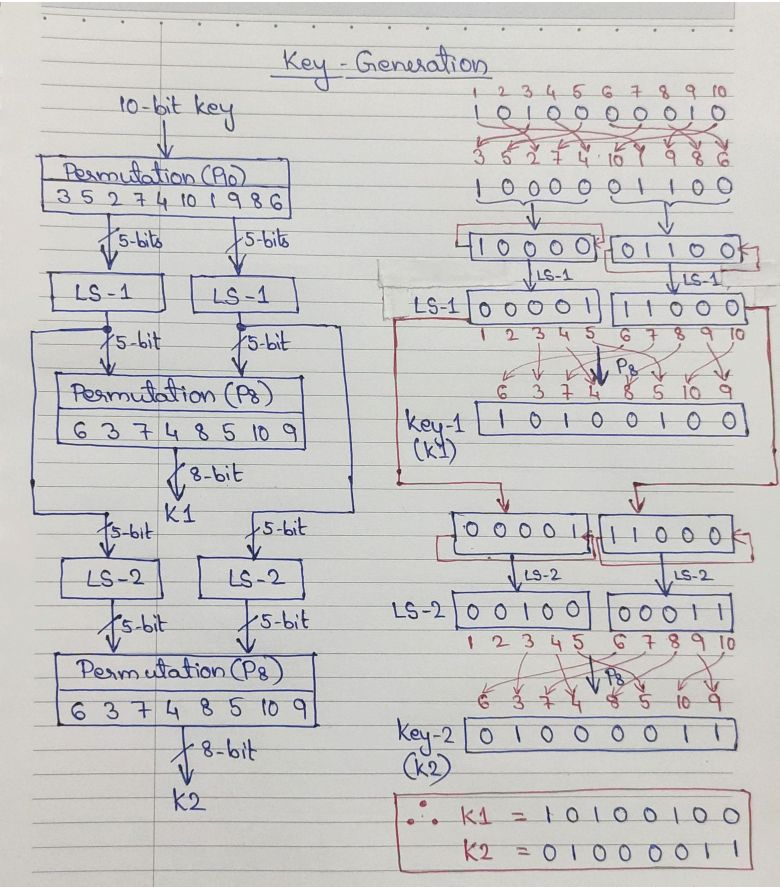 Key - Generation
10-bit key
Permutation (P10)
3 5 2 7 4 10 1 9 8 6
5-bits 5-bits
LS-1 LS-1
5-bit 5-bit
Permutation (P8)
6 3 7 4 8 5 10 9
8-bit
K1
5-bit 5-bit
LS-2 LS-2
5-bit 5-bit
Permutation (P8)
6 3 7 4 8 5 10 9
8-bit
K2
1 2 3 4 5 6 7 8 9 10
1 0 1 0 0 0 0 0 1 0
3 5 2 7 4 10 1 9 8 6
1 0 0 0 0 0 1 1 0 0
1 0 0 0 0 0 1 1 0 0
LS-1 LS-1
LS-1 0 0 0 0 1 1 1 0 0 0
1 2 3 4 5 6 7 8 9 10
P8
6 3 7 4 8 5 10 9
Key-1 1 0 1 0 0 1 0 0
(K1)
0 0 0 0 1 1 1 0 0 0
LS-2 LS-2
LS-2 0 0 1 0 0 0 0 0 1 1
1 2 3 4 5 6 7 8 9 10
P8
6 3 7 4 8 5 10 9
Key-2 0 1 0 0 0 0 1 1
(K2)
∴ K1 = 1 0 1 0 0 1 0 0
K2 = 0 1 0 0 0 0 1 1